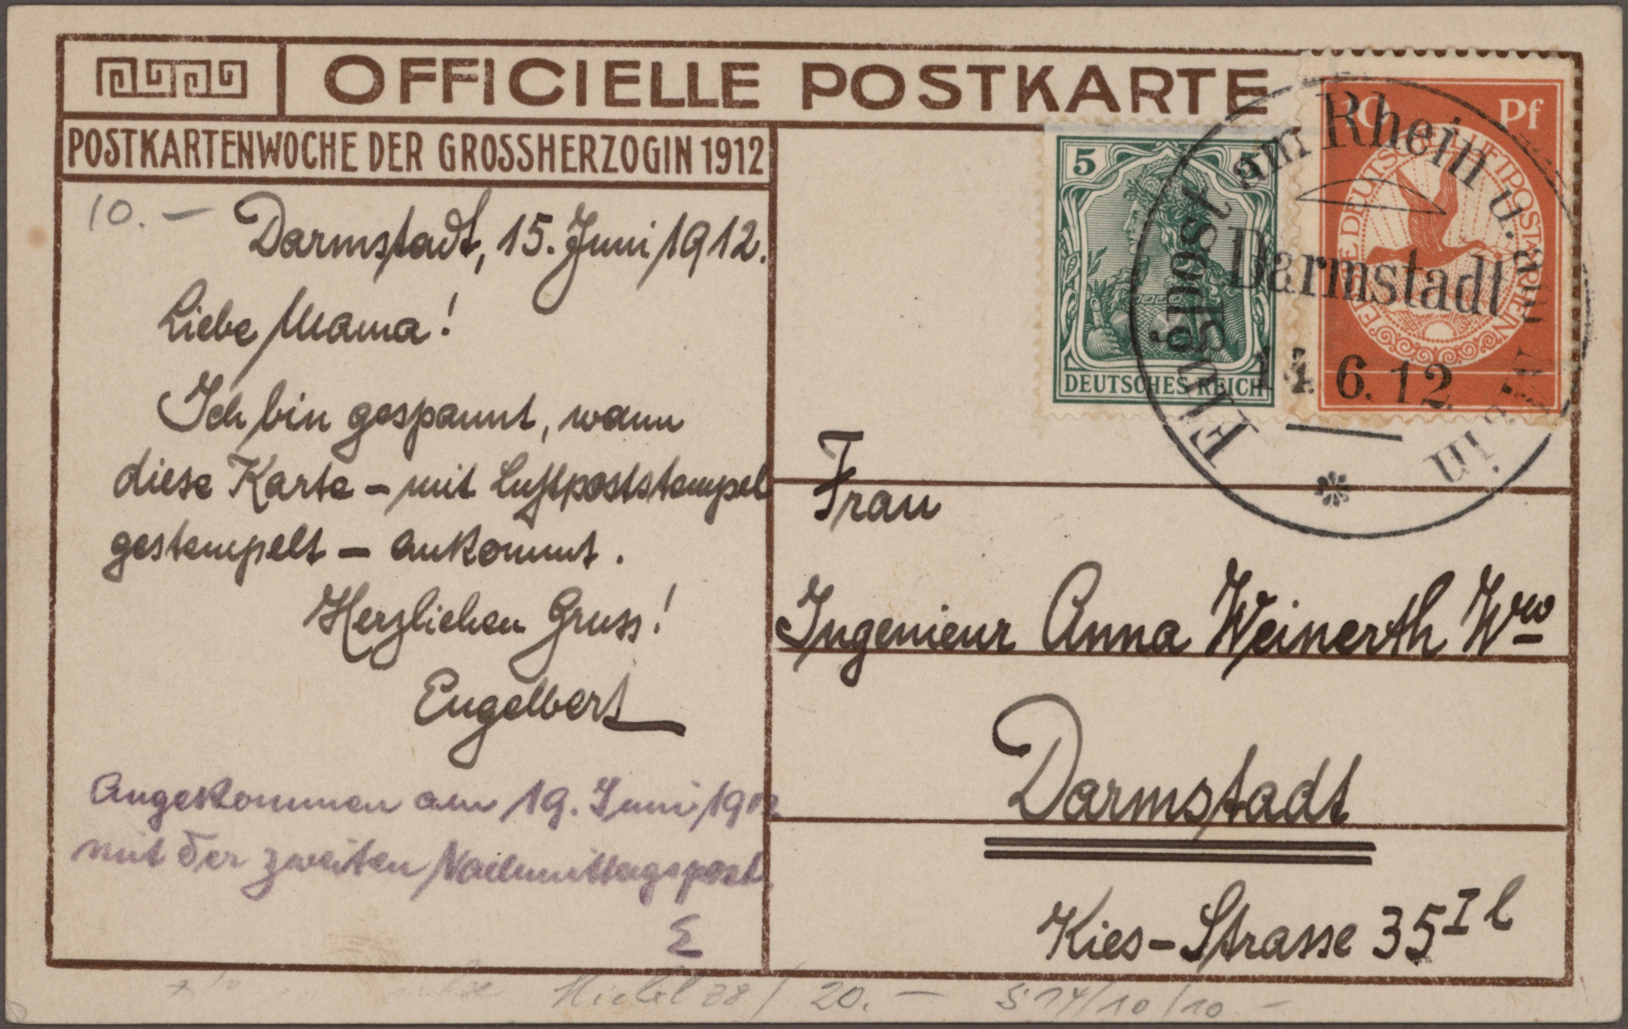 OFFICIELLE POSTKARTE
POSTKARTENWOCHE DER GROSSHERZOGIN 1912
10.—
Darmstadt, 15. Juni 1912.
Liebe Mama!
Ich bin gespannt, wann
diese Karte – mit Luftpoststempel
gestempelt – ankommt.
Herzlichen Gruss!
Engelbert
Angekommen am 19. Juni 1912
mit der zweiten Nachmittagspost.
E
5
DEUTSCHES REICH
20 Pf
Flugpost am Rhein u. am Main
Darmstadt
6. 12
Frau
Ingenieur Anna Weinerth Ww
Darmstadt
Kies-Strasse 35 I l
20.—